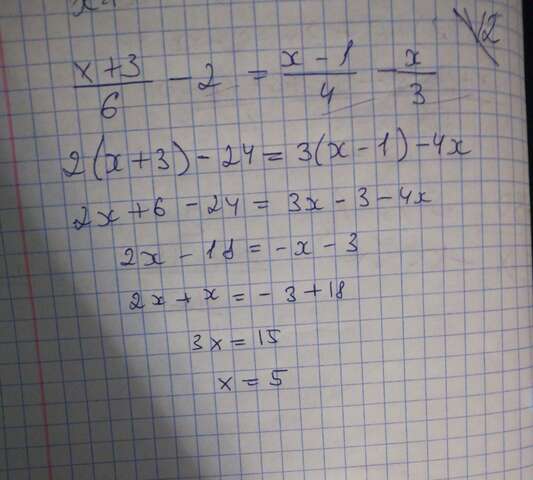 12
(x+3)/6 - 2 = (x-1)/4 - x/3
2(x+3) - 24 = 3(x-1) - 4x
2x + 6 - 24 = 3x - 3 - 4x
2x - 18 = -x - 3
2x + x = -3 + 18
3x = 15
x = 5